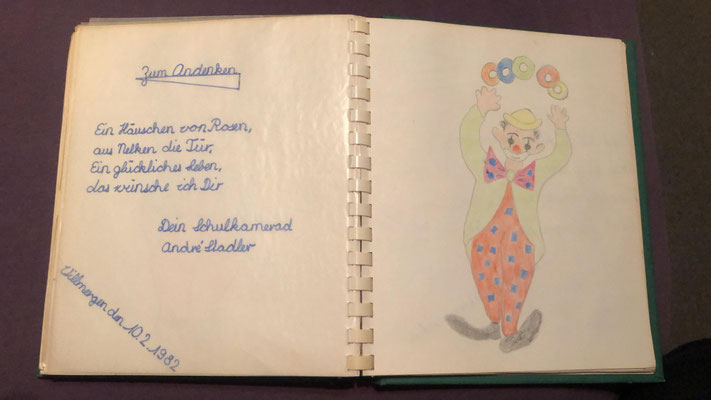 Zum Andenken
Ein Häuschen von Rosen,
aus Nelken die Tür,
Ein glückliches Leben,
das wünsche ich Dir
Dein Schulkamerad
André Stadler
Villmergen den 10.2.1982